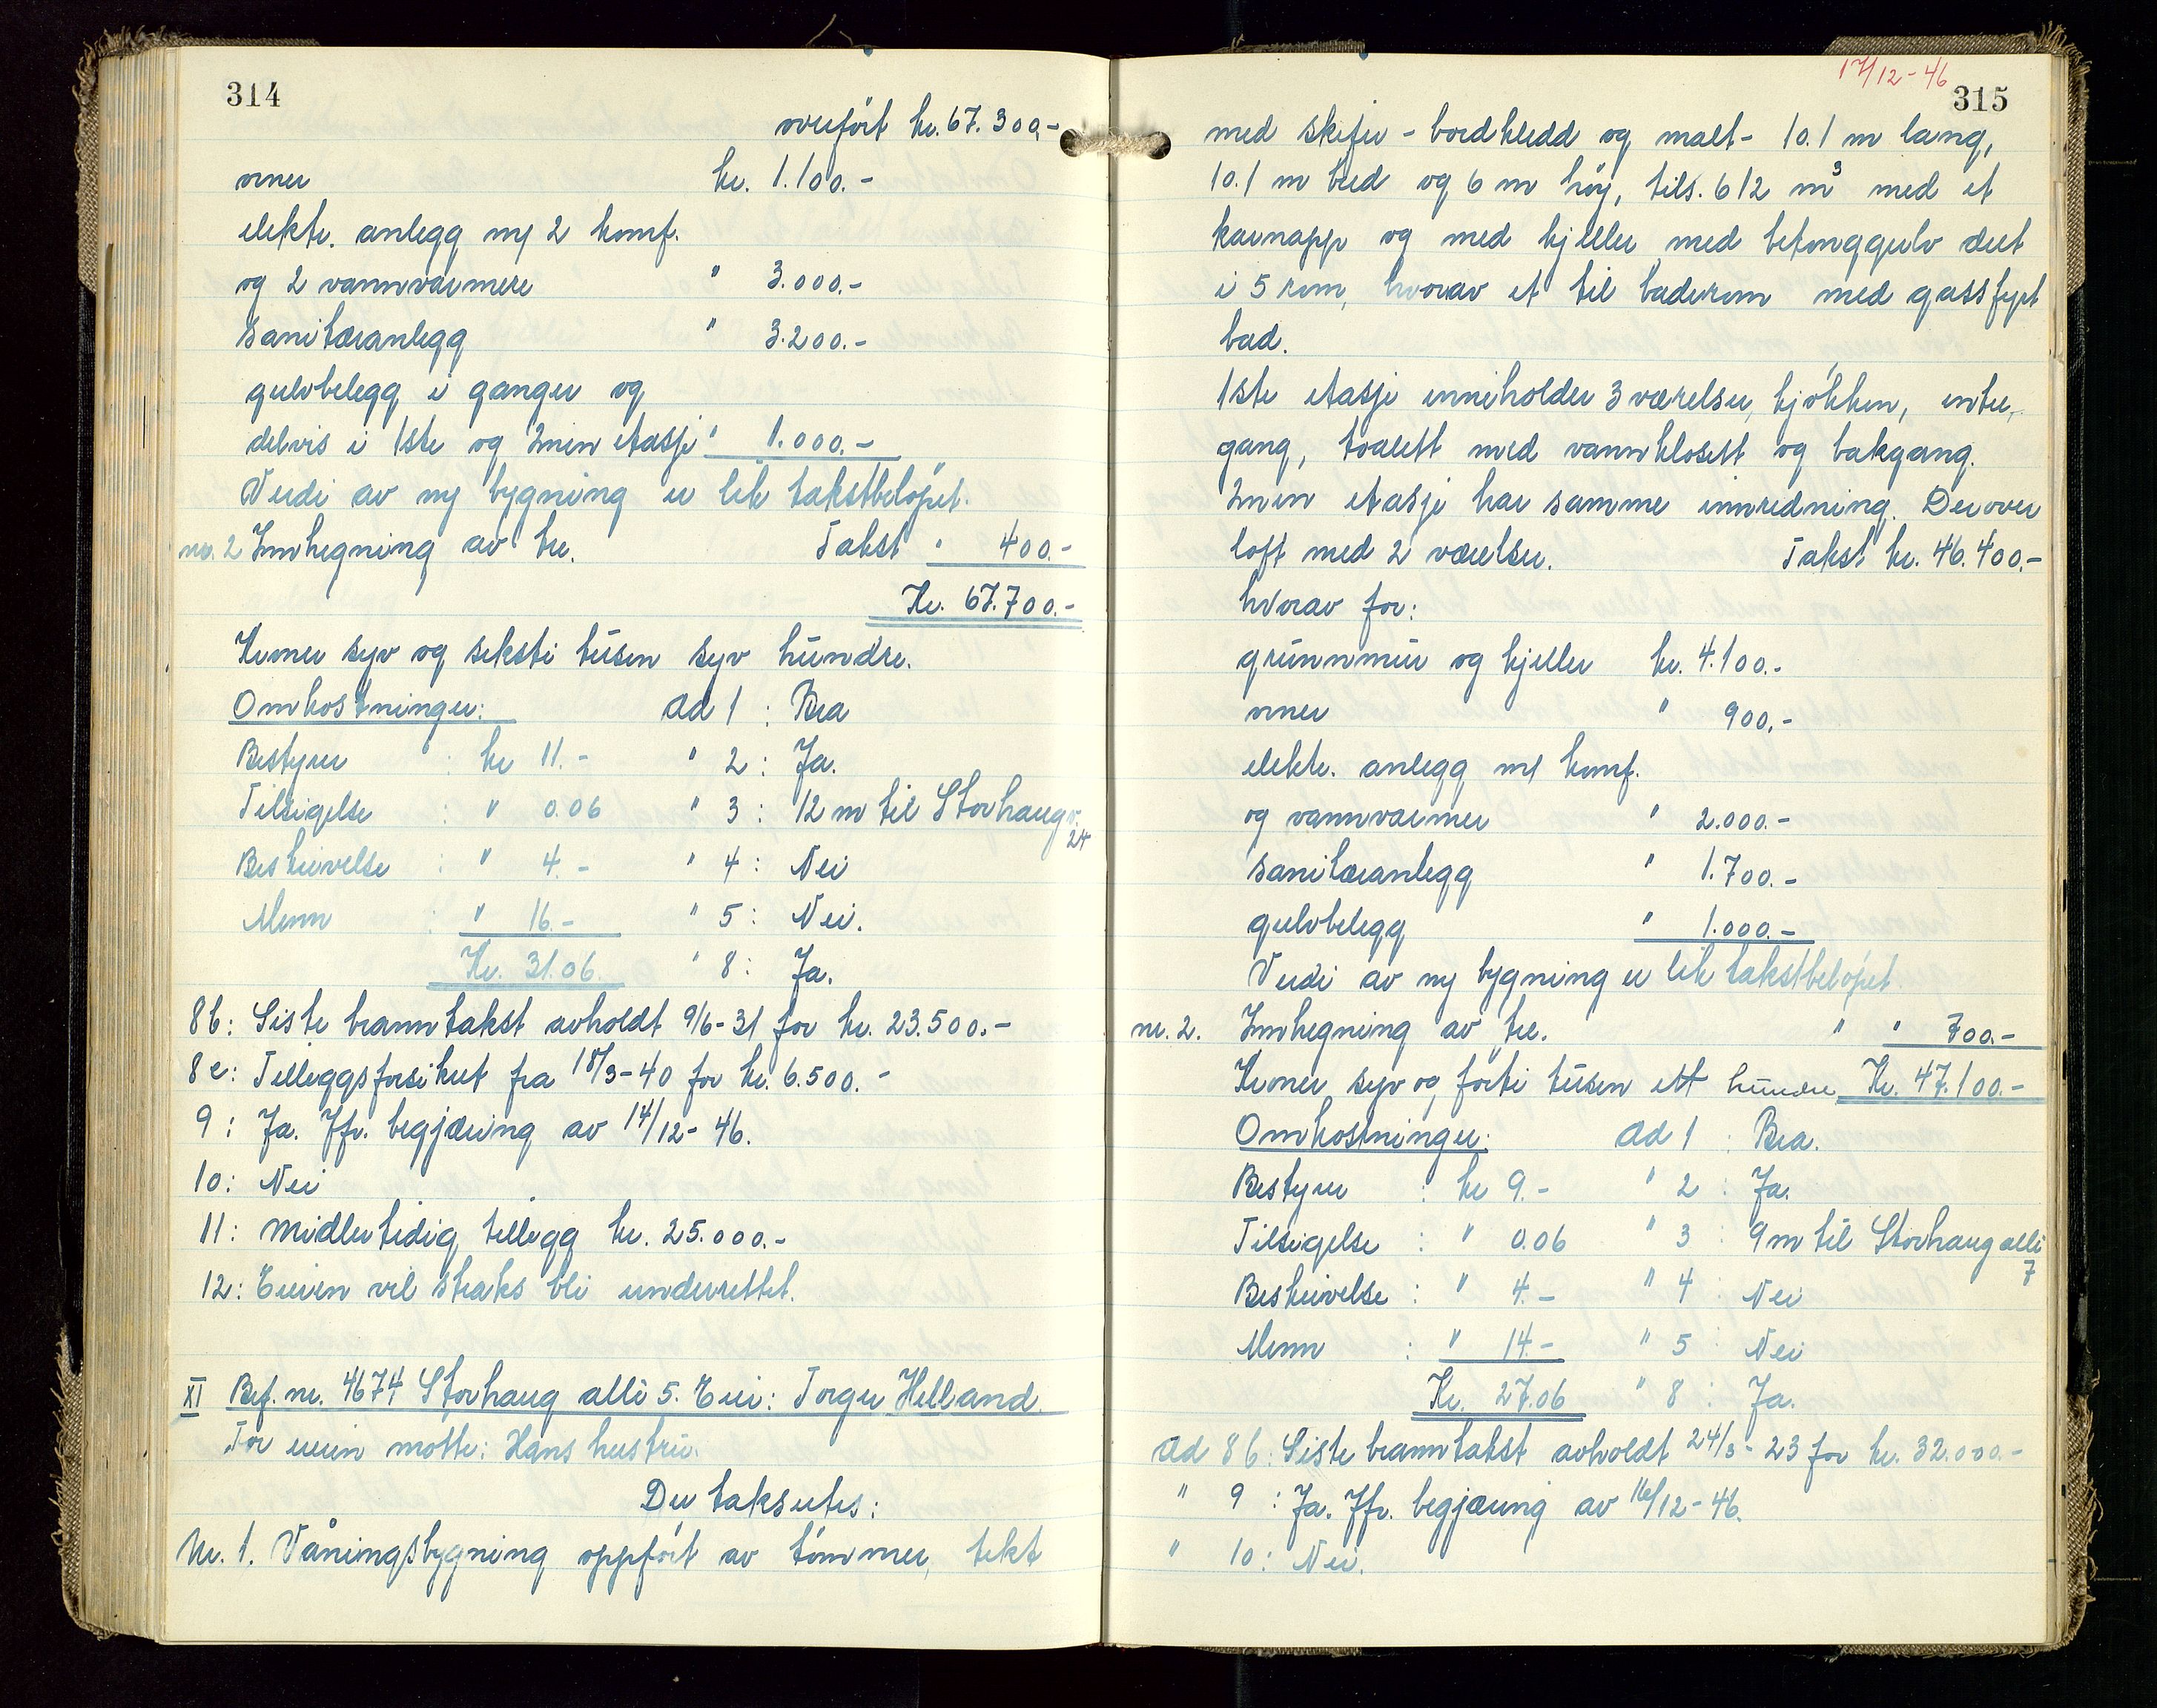 314
overført kr. 67.300,-
ovner kr. 1.100.-
elektr. anlegg m/ 2 komf.
og 2 vannvarmere " 3.000.-
sanitæranlegg " 3.200.-
gulvbelegg i ganger og
delvis i 1ste og 2nen etasje " 1.000.-
Verdi av ny bygning er lik takstbeløpet.
nr. 2 Innhegning av tre. Takst " 400.-
Kr. 67.700.-
Kroner syv og seksti tusen syv hundre.
Omkostninger: ad 1 : Bra
Bestyrer : kr 11.- " 2 : Ja.
Tilsigelse : " 0.06 " 3 : 12 m til Storhaugv.
24
Beskrivelse : " 4.- " 4 : Nei
Menn : " 16.- " 5 : Nei.
Kr. 31.06. " 8 : Ja.
8b: Siste branntakst avholdt 9/6-31 for kr. 23.500.-
8c: Tilleggsforsikret fra 18/3-40 for kr. 6.500.-
9 : Ja. Jfr. begjæring av 14/12-46.
10: Nei
11: Midlertidig tillegg kr. 25.000.-
12: Eieren vil straks bli underrettet.
XI Brf. nr. 4674 Storhaug alle 5. Eier: Torger Helland.
For eieren møtte: Hans hustru.
Der takseres:
Nr. 1. Våningsbygning oppført av tømmer, tekt
17/12-46
315
med skifer - bordkledd og malt - 10.1 m lang,
10.1 m bred og 6 m høy, tils. 612 m3 med et
karnapp og med kjeller med betonggulv delt
i 5 rom, hvorav et til baderom med gassfyrt
bad.
1ste etasje inneholder 3 værelser, kjøkken, entre,
gang, toalett med vannklosett og bakgang.
2nen etasje har samme innredning. Derover
loft med 2 værelser. Takst kr. 46.400.-
hvorav for:
grunnmur og kjeller kr. 4.100.-
ovner " 900.-
elektr. anlegg m/ komf.
og vannvarmer " 2.000.-
sanitæranlegg " 1.700.-
gulvbelegg " 1.000.-
Verdi av ny bygning er lik takstbeløpet.
nr. 2. Innhegning av tre. " " 700.-
Kroner syv og førti tusen ett hundre. Kr. 47.100.-
Omkostninger: ad 1 : Bra.
Bestyrer : kr 9.- " 2 : Ja.
Tilsigelse : " 0.06 " 3 : 9 m til Storhaug alle
7
Beskrivelse : " 4.- " 4 : Nei
Menn : " 14.- " 5 : Nei
Kr. 27.06 " 8 : Ja.
ad 8b: Siste branntakst avholdt 24/3-23 for kr. 32.000.-
" 9 : Ja. Jfr. begjæring av 16/12-46.
" 10: Nei.